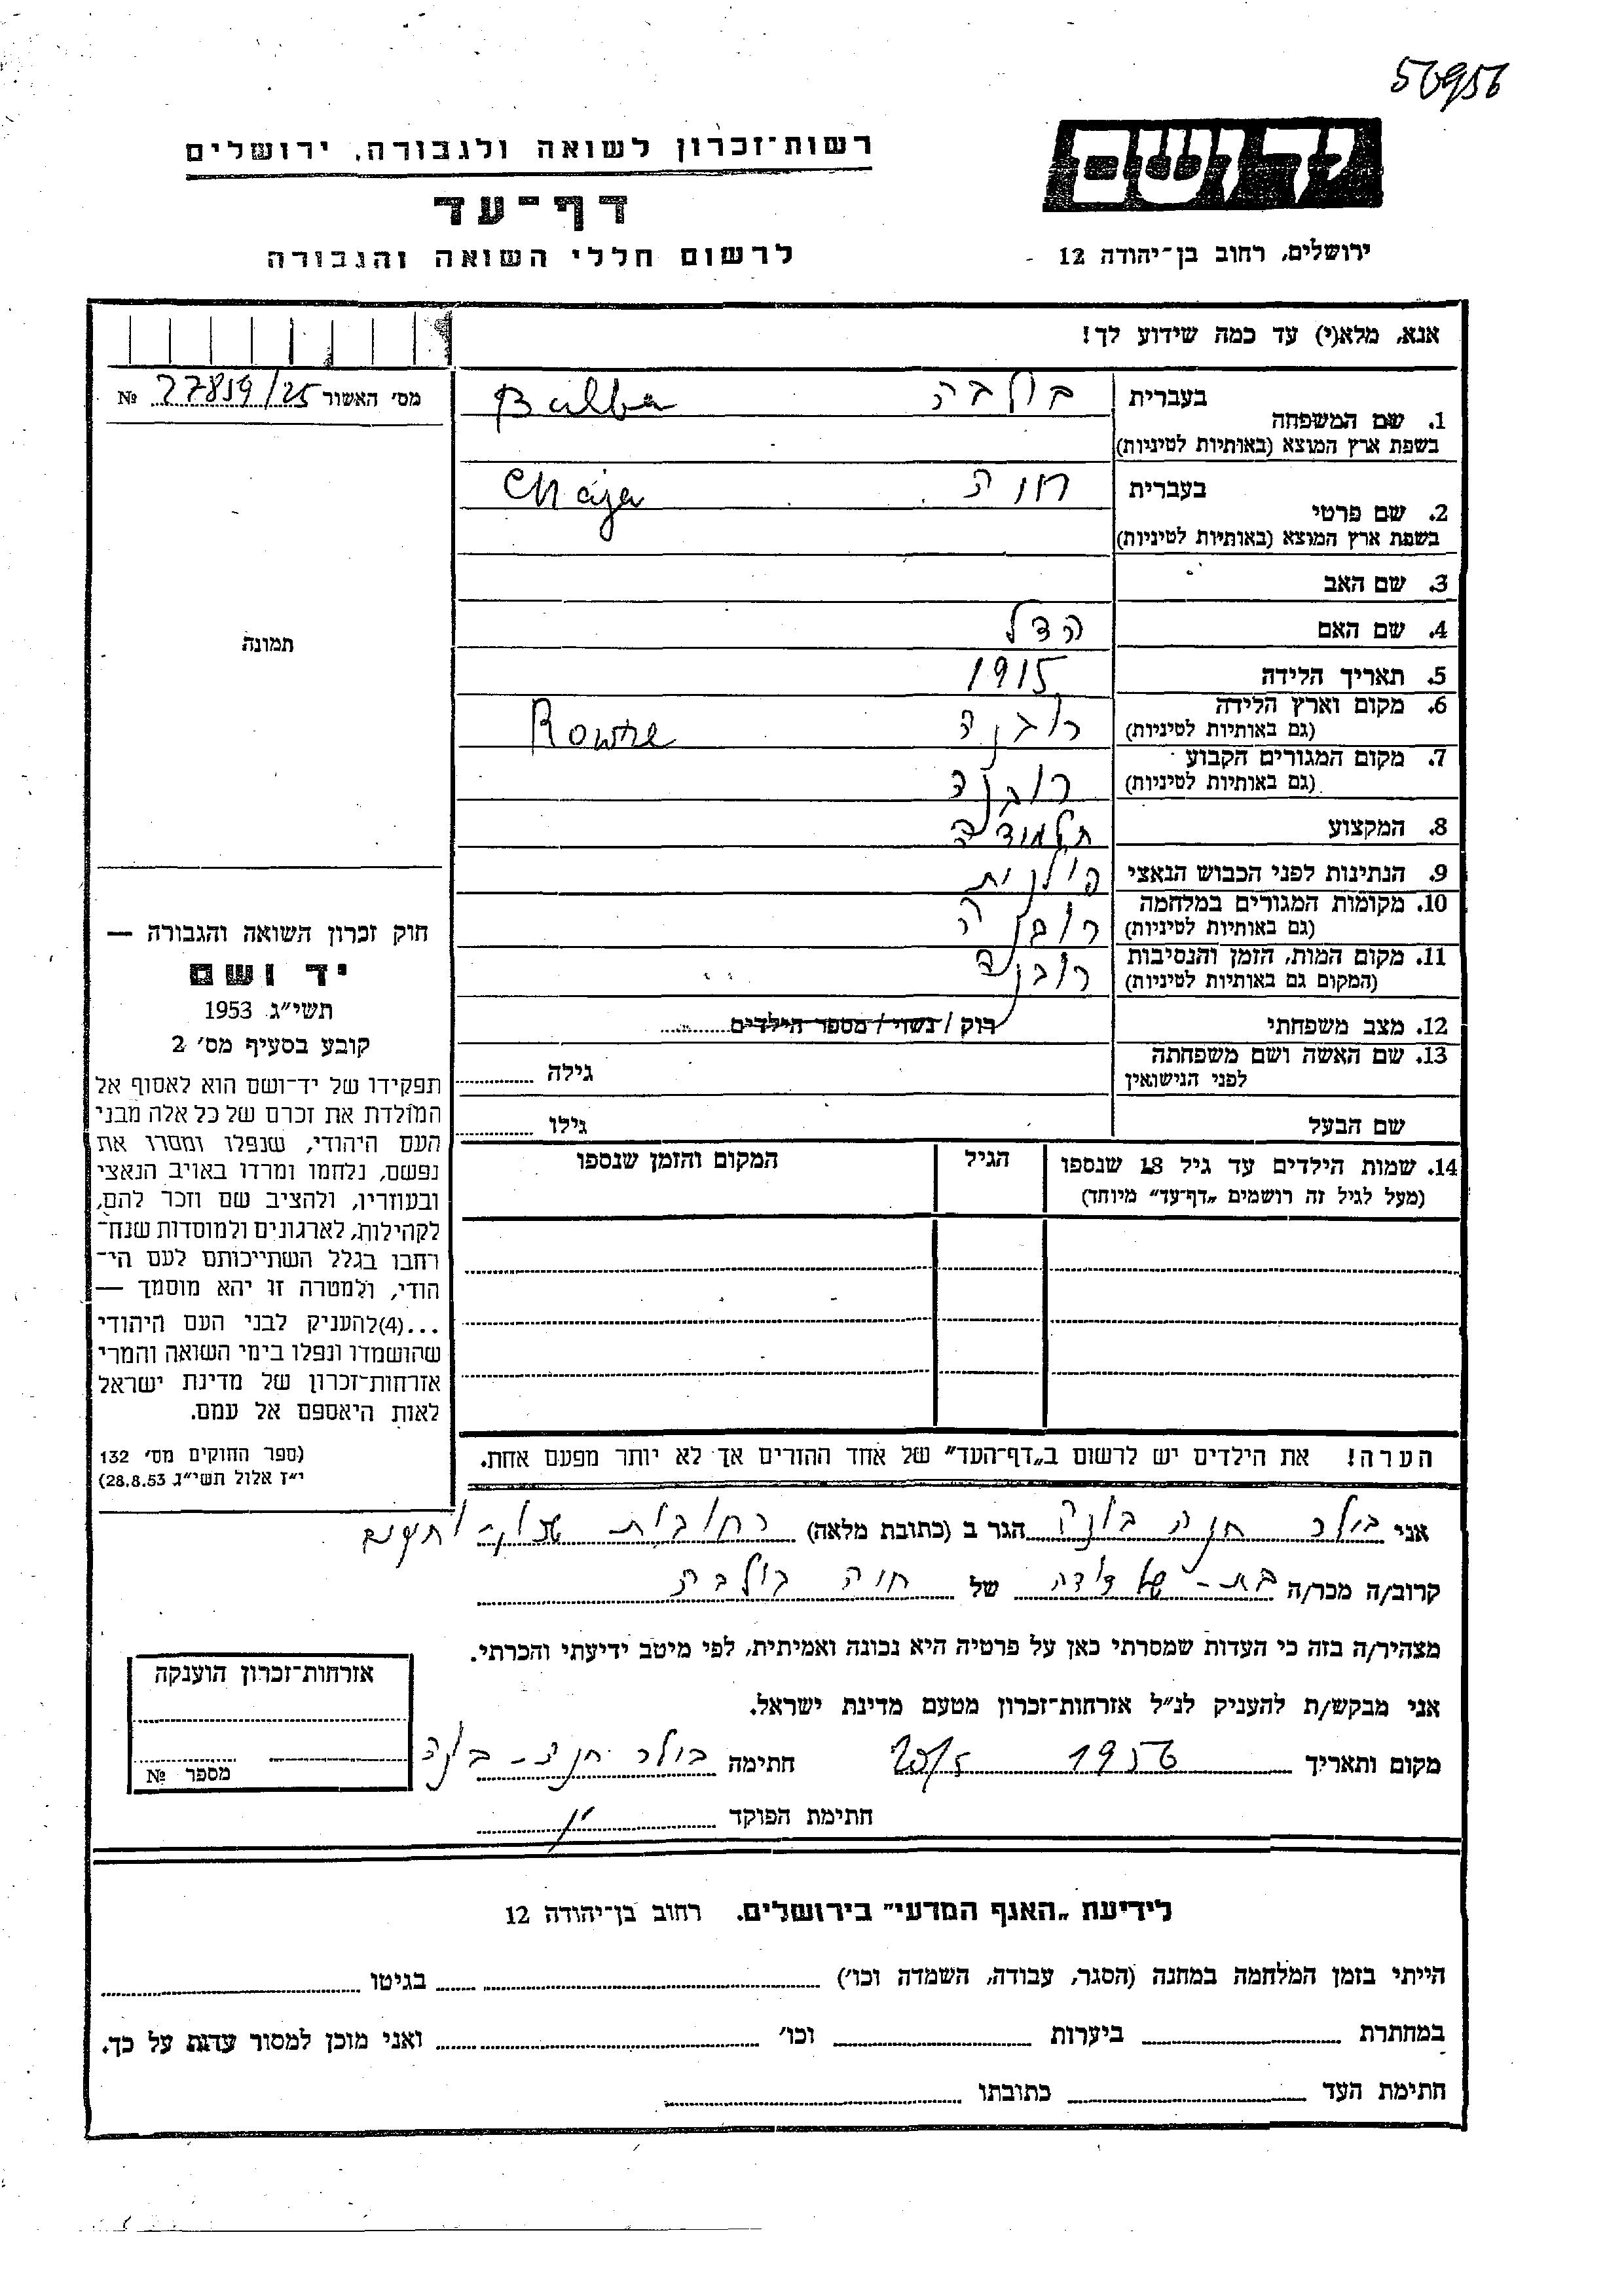 50956
יד ושם
רשות־זכרון לשואה ולגבורה, ירושלים
דף־עד
לרשום חללי השואה והגבורה
ירושלים, רחוב בן־יהודה 12
אנא, מלא(י) עד כמה שידוע לך!
מס׳ האשור 27859/25 №
תמונה
1. שם המשפחה בעברית בולבה Bulba
בשפת ארץ המוצא (באותיות לטיניות)
2. שם פרטי בעברית חיה Chaja
בשפת ארץ המוצא (באותיות לטיניות)
3. שם האב
4. שם האם הדל
5. תאריך הלידה 1915
6. מקום וארץ הלידה רובנה Rowne
(גם באותיות לטיניות)
7. מקום המגורים הקבוע רובנה
(גם באותיות לטיניות)
8. המקצוע תלמידה
9. הנתינות לפני הכבוש הנאצי פולנית
10. מקומות המגורים במלחמה רובנה
(גם באותיות לטיניות)
11. מקום המות, הזמן והנסיבות רובנה
(המקום גם באותיות לטיניות)
12. מצב משפחתי רוק / נשוי / מספר הילדים
13. שם האשה ושם משפחתה גילה
לפני הנישואין
שם הבעל גילו
14. שמות הילדים עד גיל 18 שנספו הגיל המקום והזמן שנספו
(מעל לגיל זה רושמים „דף־עד” מיוחד)
חוק זכרון השואה והגבורה —
יד ושם
תשי״ג 1953
קובע בסעיף מס׳ 2
תפקידו של יד־ושם הוא לאסוף אל
המולדת את זכרם של כל אלה מבני
העם היהודי, שנפלו ומסרו את
נפשם, נלחמו ומרדו באויב הנאצי
ובעוזריו, ולהציב שם וזכר להם,
לקהילות, לארגונים ולמוסדות שנח־
רבו בגלל השתייכותם לעם הי־
הודי, ולמטרה זו יהא מוסמך —
...(4)להעניק לבני העם היהודי
שהושמדו ונפלו בימי השואה והמרי
אזרחות־זכרון של מדינת ישראל
לאות היאספם אל עמם.
(ספר החוקים מס׳ 132
י״ז אלול תשי״ג 28.8.53)
הערה! את הילדים יש לרשום ב„דף־העד” של אחד ההורים אך לא יותר מפעם אחת.
אני בולר חנה בונה הגר ב (כתובת מלאה) רחובות
קרוב/ה מכר/ה בת-של דודה של חיה בולבה
מצהיר/ה בזה כי העדות שמסרתי כאן על פרטיה היא נכונה ואמיתית, לפי מיטב ידיעתי והכרתי.
אני מבקש/ת להעניק לנ״ל אזרחות־זכרון מטעם מדינת ישראל.
מקום ותאריך 1956 20/5 חתימה בולר חנה - בונה
חתימת הפוקד
אזרחות־זכרון הוענקה
מספר №
לידיעת „האגף המדעי” בירושלים. רחוב בן־יהודה 12
הייתי בזמן המלחמה במחנה (הסגר, עבודה, השמדה וכו׳) בגיטו
במחתרת ביערות וכו׳ ואני מוכן למסור עדות על כך.
חתימת העד כתובתו